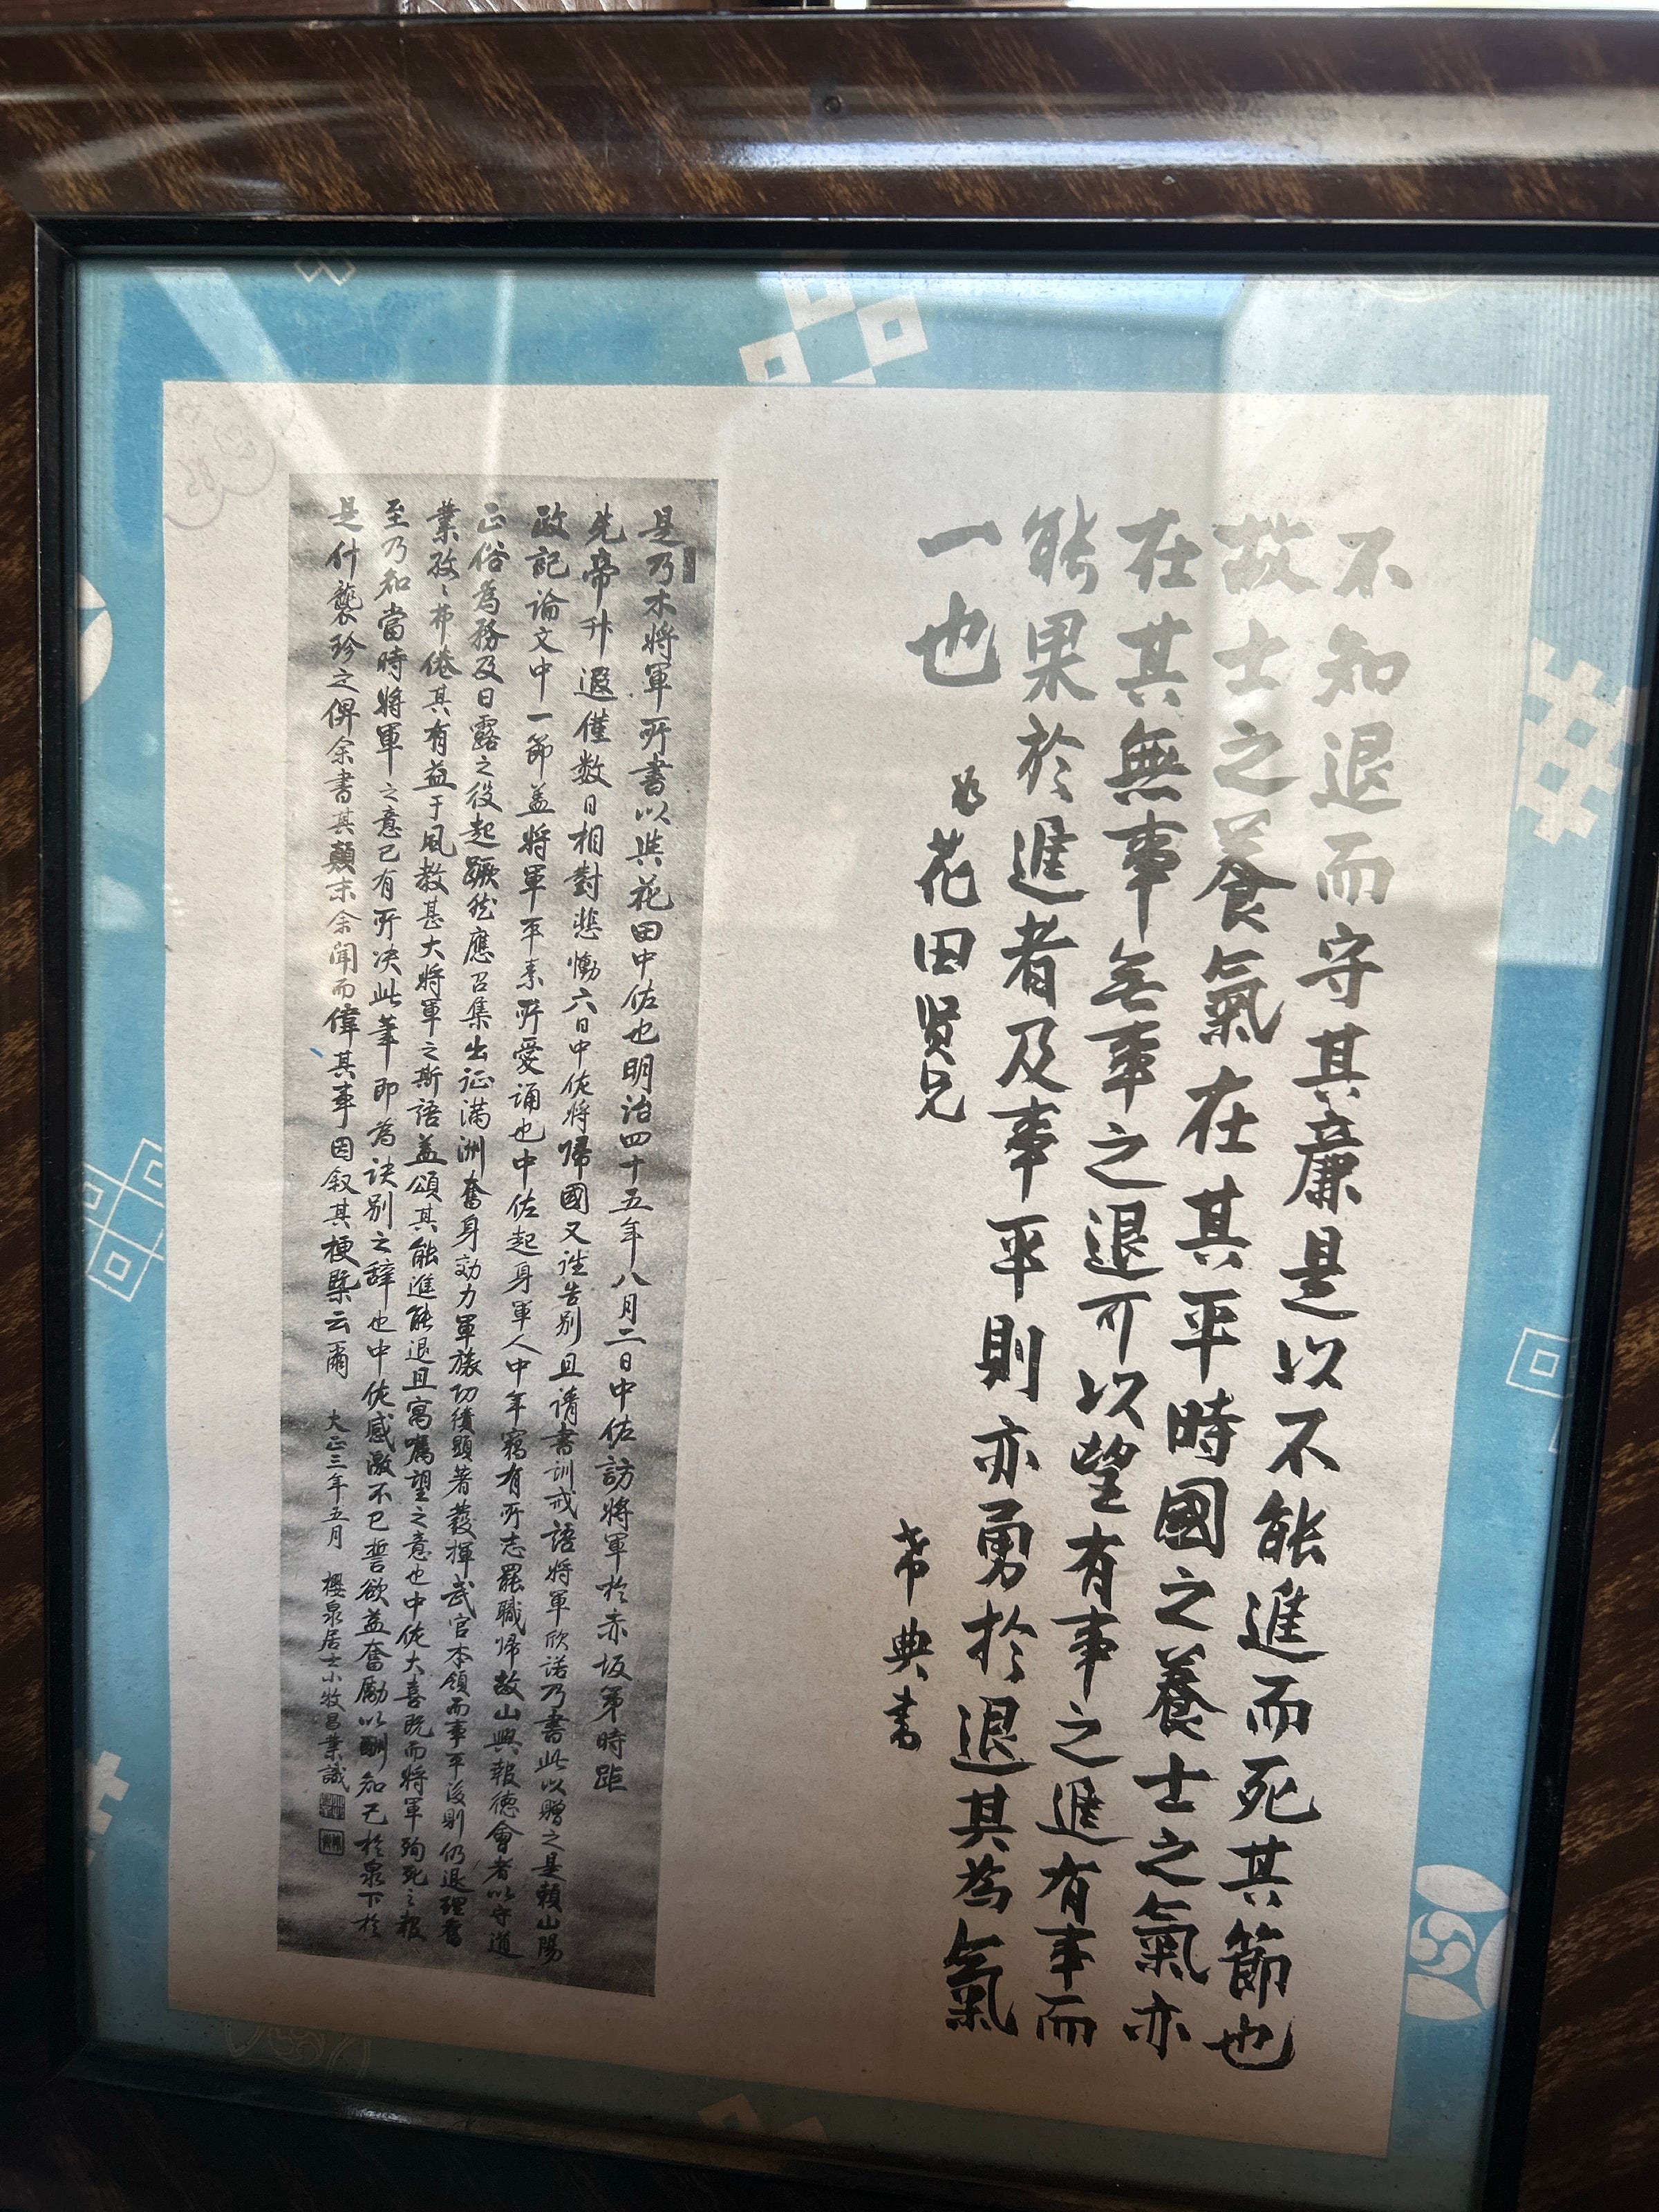 不知退而守其廉是以不能進而死其節也
故士之養氣在其平時國之養士之氣亦
在其無事無事之退可以望有事之進有事而
能果於進者及事平則亦勇於退其為氣
一也
花田賢兄
希典書
是乃木將軍所書以與花田中佐也明治四十五年八月二日中佐訪將軍於赤坂第時距
先帝升遐僅数日相對悲慟六日中佐將帰國又往告別且請書訓戒語將軍欣諾乃書此以贈之是頼山陽
政記論文中一節蓋將軍平素所愛誦也中佐起身軍人中年竊有所志罷職帰故山興報徳會者以守道
正俗為務及日露之役起蹶然應召集出征満洲奮身効力軍旅功績顕著發揮武官本領而事平後則仍退理舊
業孜々弗倦其有益于風教甚大將軍之斯語蓋頌其能進能退且寓嘱望之意也中佐大喜既而將軍殉死之報
至乃知當時將軍之意已有所决此筆即為訣別之辞也中佐感激不已誓欲益奮勵以酬知己於泉下於
是什襲珍之俾余書其顛末余聞而偉其事因叙其梗槩云爾 大正三年五月 櫻泉居士小牧昌業識